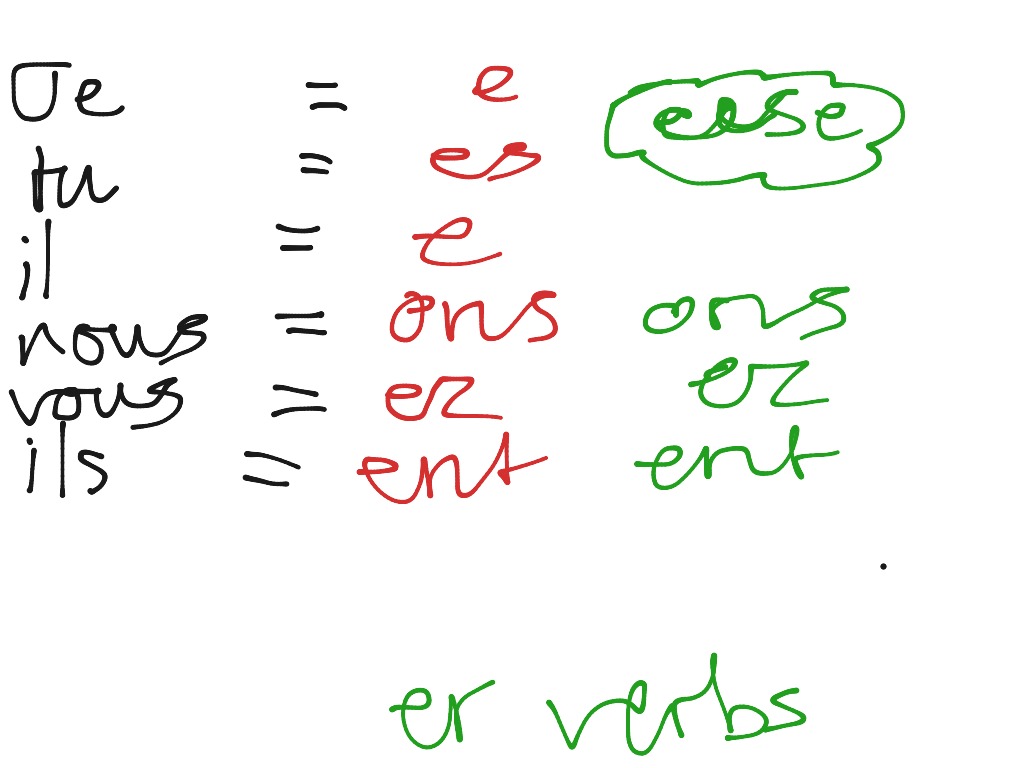 Je = e
tu = es eese
il = e
nous = ons ons
vous = ez ez
ils = ent ent
er verbs